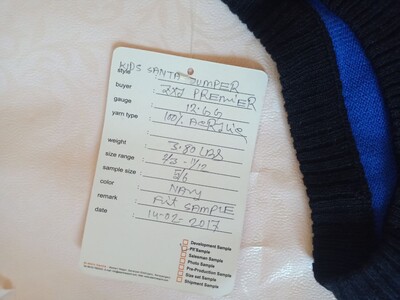 KIDS SANTA JUMPER
style :
buyer : 2XJ PREMIER
gauge : 12.GG
yarn type : 100% Acrylic
weight : 3.80 LBS
size range : 2/3 - 11/12
sample size : 5/6
color : NAVY
remark : Fit SAMPLE
date : 14-02-2017
Development Sample
Fit Sample
Salesman Sample
Photo Sample
Pre-Production Sample
Size set Sample
Shipment Sample